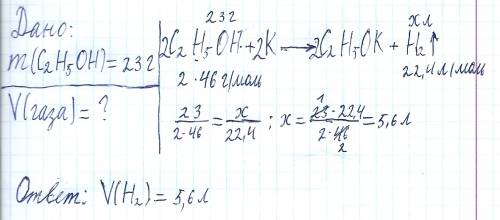 Дано:
m(C₂H₅OH)=23г
V(газа)=?
23г xл
2C₂H₅OH+2K⟶2C₂H₅OK + H₂↑
2·46г/моль 22,4л/моль
23/2·46 = x/22,4 ; x = 23·22,4/2·46 = 5,6л
1
2
Ответ: V(H₂)=5,6л